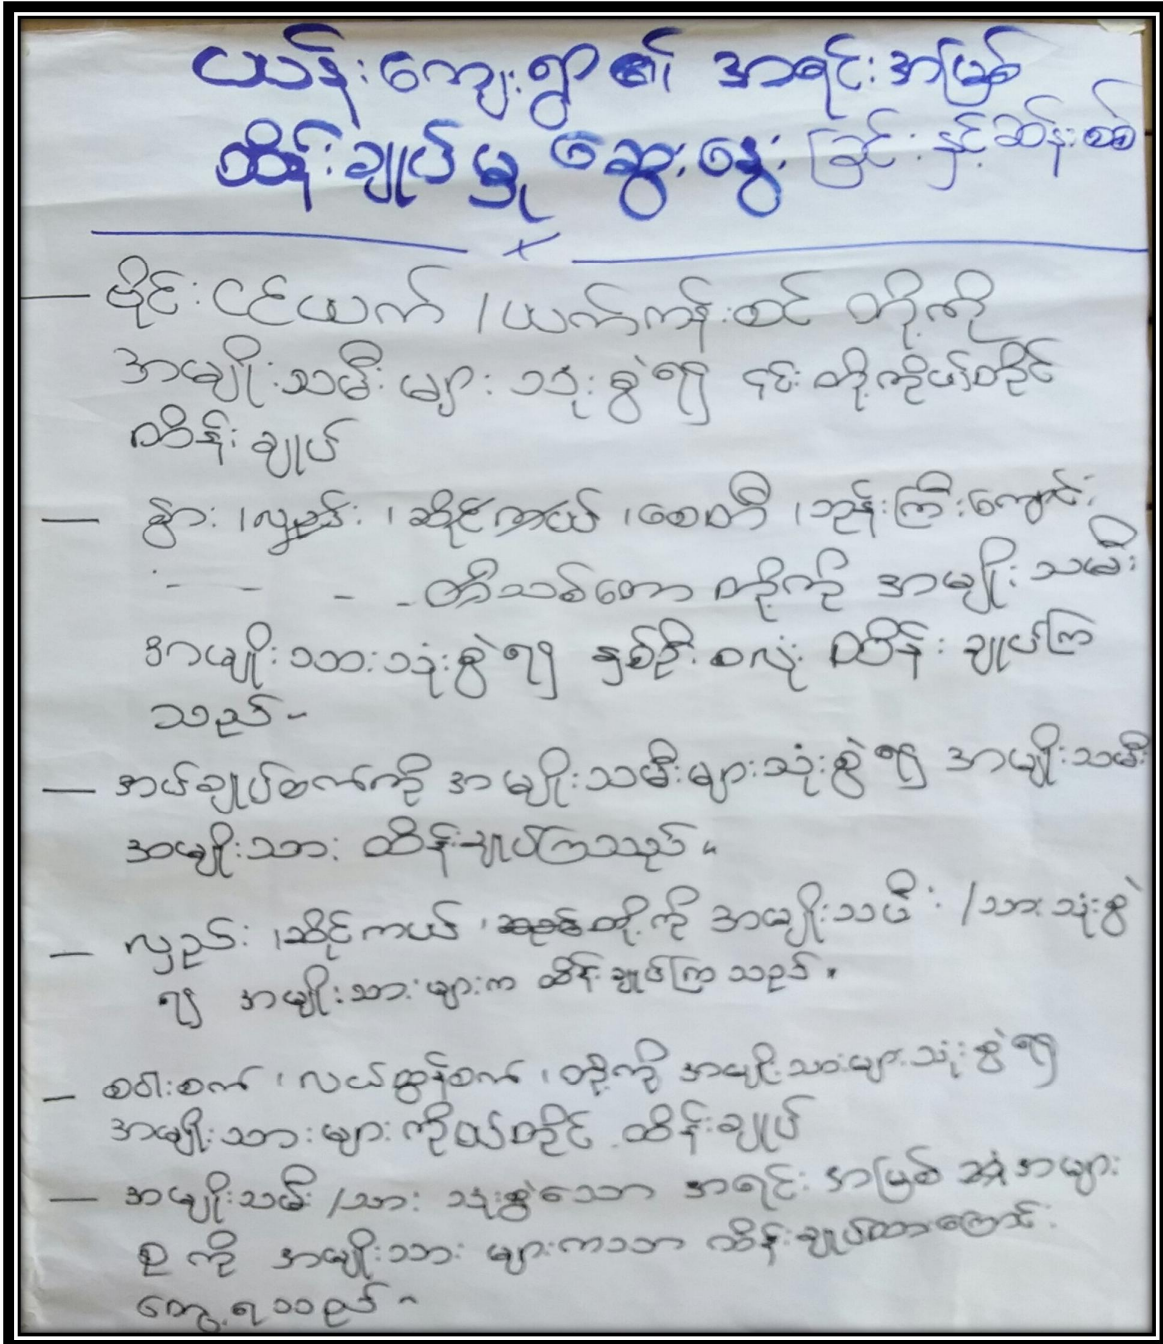 ယန်းကျေးရွာ၏ အရင်းအမြစ်
ထိန်းချုပ်မှု ဆွေးနွေးခြင်းနှင့်ဆန်းစစ်
— ဗိုင်းငင်ယက် / ယက်ကန်းစင် တို့ကို
အမျိုးသမီးများသုံးစွဲ၍ ၎င်းတို့ကိုယ်တိုင်
ထိန်းချုပ်
— နွား ၊ လှည်း ၊ ဆိုင်ကယ် ၊ စေတီ ၊ ဘုန်းကြီးကျောင်း
- - - - သစ်တော တို့ကို အမျိုးသမီး
အမျိုးသားသုံးစွဲ၍ နှစ်ဦးစလုံး ထိန်းချုပ်ကြ
သည်-
— အပ်ချုပ်စက်ကို အမျိုးသမီးများသုံးစွဲ၍ အမျိုးသမီး
အမျိုးသား ထိန်းချုပ်ကြသည်။
— လှည်း ၊ ဆိုင်ကယ် ၊ တို့ကို အမျိုးသမီး / သား သုံးစွဲ
၍ အမျိုးသားများက ထိန်းချုပ်ကြသည်။
— စပါးစက် ၊ လယ်ထွန်စက် ၊ တို့ကို အမျိုးသားများသုံးစွဲ၍
အမျိုးသားများ ကိုယ်တိုင် ထိန်းချုပ်
— အမျိုးသမီး / သား သုံးစွဲသော အရင်းအမြစ် အများ
စု ကို အမျိုးသား များကသာ ထိန်းချုပ်ထားကြောင်း
တွေ့ရသည်-